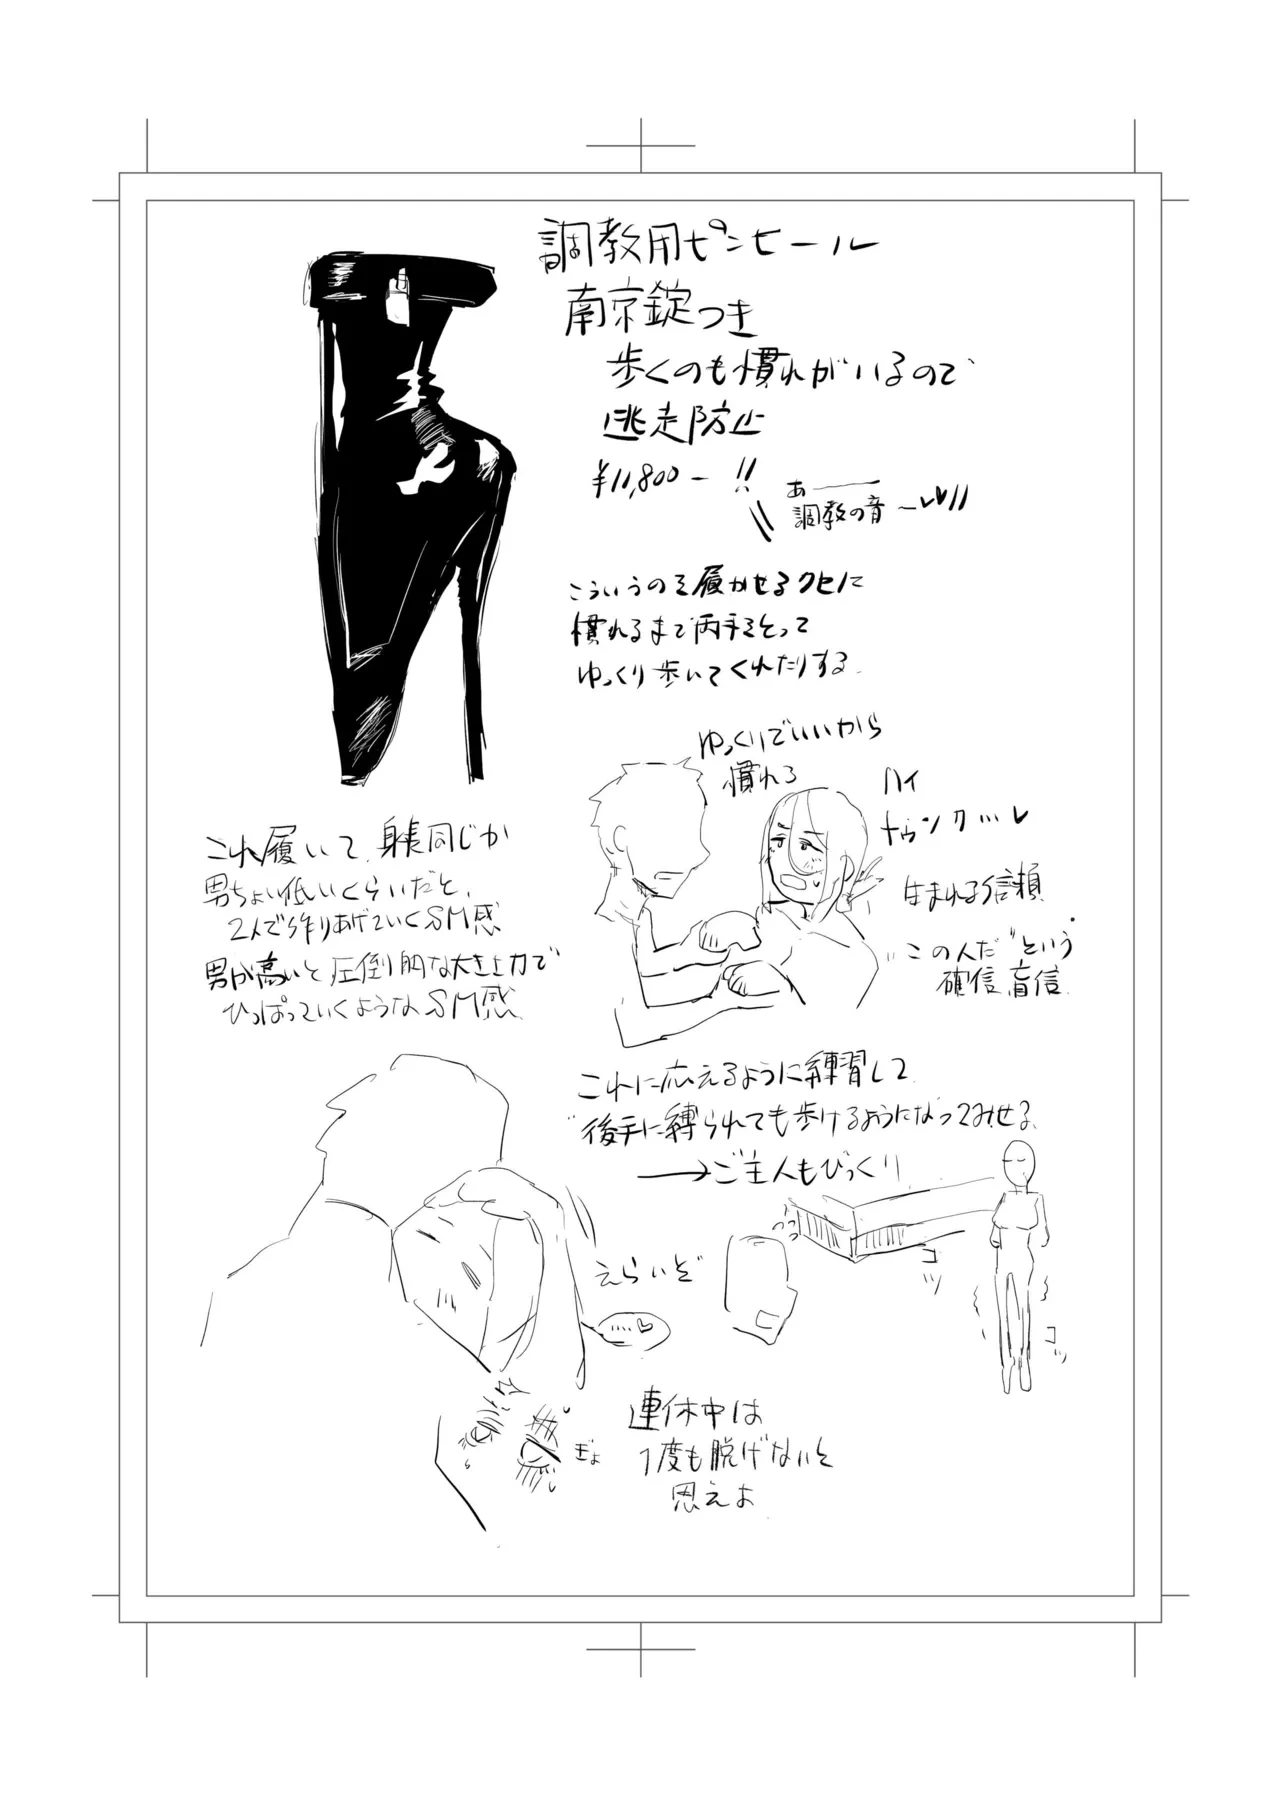 調教用ピンヒール
南京錠つき
歩くのも慣れがいるので
逃走防止
¥11,800- !!
あ――
調教の音〜♥♥!!
こういうのを履かせるクセに
慣れるまで両手をとって
ゆっくり歩いてくれたりする.
ゆっくりでいいから
慣れろ
ハイ
トゥンク…♥
生まれる信頼
"この人だ"という
確信、盲信.
これ履いて、身長同じか
男ちょい低いくらいだと、
2人で作りあげていくSM感
男が高いと圧倒的な大きな力で
ひっぱっていくようなSM感
これに応えるように練習して
後手に縛られても歩けるようになってみせる
→ご主人もびっくり
えらいぞ
....♥
コッ
コッ
ぎょ
連休中は
1度も脱げないと
思えよ